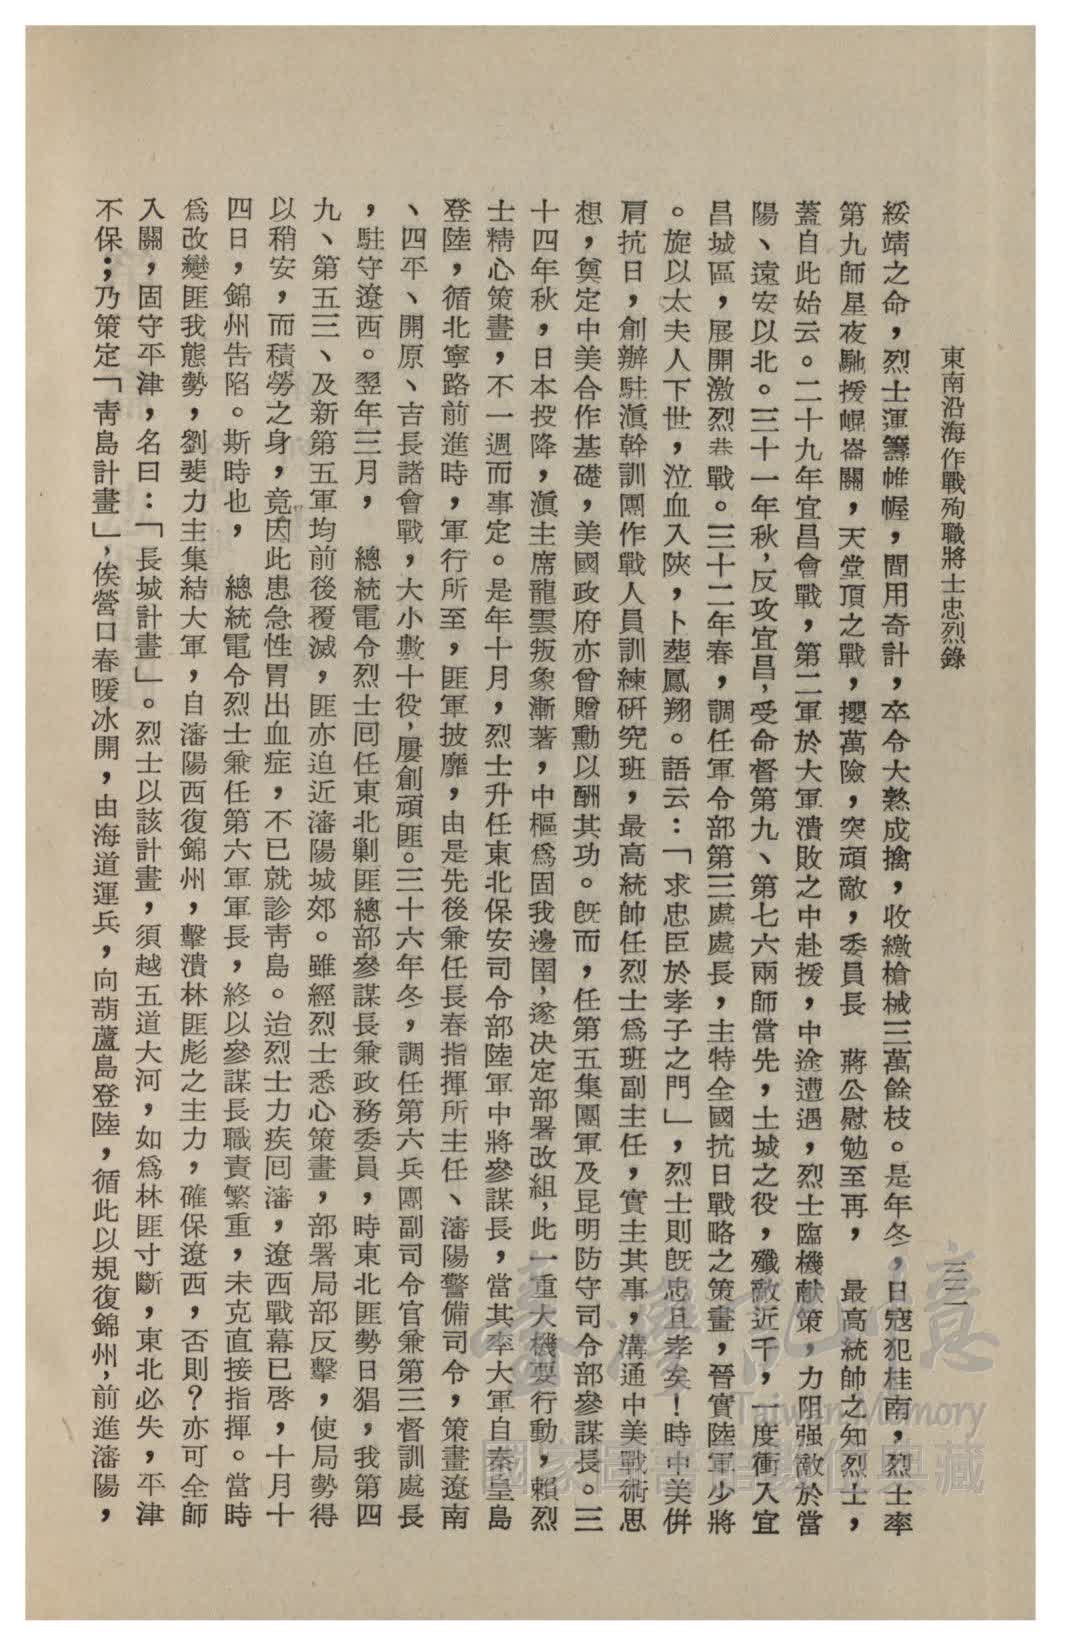 東南沿海作戰殉職將士忠烈錄
三二
綏靖之命，烈士運籌帷幄，間用奇計，卒令大憝成擒，收繳槍械三萬餘枝。是年冬，日寇犯桂南，烈士率
第九師星夜馳援崐崙關，天堂頂之戰，攖萬險，突頑敵，委員長　蔣公慰勉至再，　最高統帥之知烈士，
蓋自此始云。二十九年宜昌會戰，第二軍於大軍潰敗之中赴援，中途遭遇，烈士臨機献策，力阻强敵於當
陽、遠安以北。三十一年秋，反攻宜昌，受命督第九、第七六兩師當先，土城之役，殲敵近千，一度衝入宜
昌城區，展開激烈巷戰。三十二年春，調任軍令部第三處處長，主特全國抗日戰略之策畫，晉實陸軍少將
。旋以太夫人下世，泣血入陝，卜塟鳳翔。語云：「求忠臣於孝子之門」，烈士則旣忠且孝矣！時中美併
肩抗日，創辦駐滇幹訓團作戰人員訓練硏究班，最高統帥任烈士爲班副主任，實主其事，溝通中美戰術思
想，奠定中美合作基礎，美國政府亦曾贈勳以酬其功。旣而，任第五集團軍及昆明防守司令部參謀長。三
十四年秋，日本投降，滇主席龍雲叛象漸著，中樞爲固我邊圉，遂决定部署改組，此一重大機要行動，賴烈
士精心策畫，不一週而事定。是年十月，烈士升任東北保安司令部陸軍中將參謀長，當其率大軍自秦皇島
登陸，循北寧路前進時，軍行所至，匪軍披靡，由是先後兼任長春指揮所主任、瀋陽警備司令，策畫遼南
、四平、開原、吉長諸會戰，大小數十役，屢創頑匪。三十六年冬，調任第六兵團副司令官兼第三督訓處長
，駐守遼西。翌年三月，　總統電令烈士囘任東北剿匪總部參謀長兼政務委員，時東北匪勢日猖，我第四
九、第五三、及新第五軍均前後覆滅，匪亦迫近瀋陽城郊。雖經烈士悉心策畫，部署局部反擊，使局勢得
以稍安，而積勞之身，竟因此患急性胃出血症，不已就診靑島。迨烈士力疾囘瀋，遼西戰幕已啓，十月十
四日，錦州吿陷。斯時也，　總統電令烈士兼任第六軍軍長，終以參謀長職責繁重，未克直接指揮。當時
爲改變匪我態勢，劉斐力主集結大軍，自瀋陽西復錦州，擊潰林匪彪之主力，確保遼西，否則？亦可全師
入關，固守平津，名曰：「長城計畫」。烈士以該計畫，須越五道大河，如爲林匪寸斷，東北必失，平津
不保；乃策定「靑島計畫」，俟營口春暖冰開，由海道運兵，向葫蘆島登陸，循此以規復錦州，前進瀋陽，
臺灣記憶
Taiwan Memory
國家圖書館數位典藏